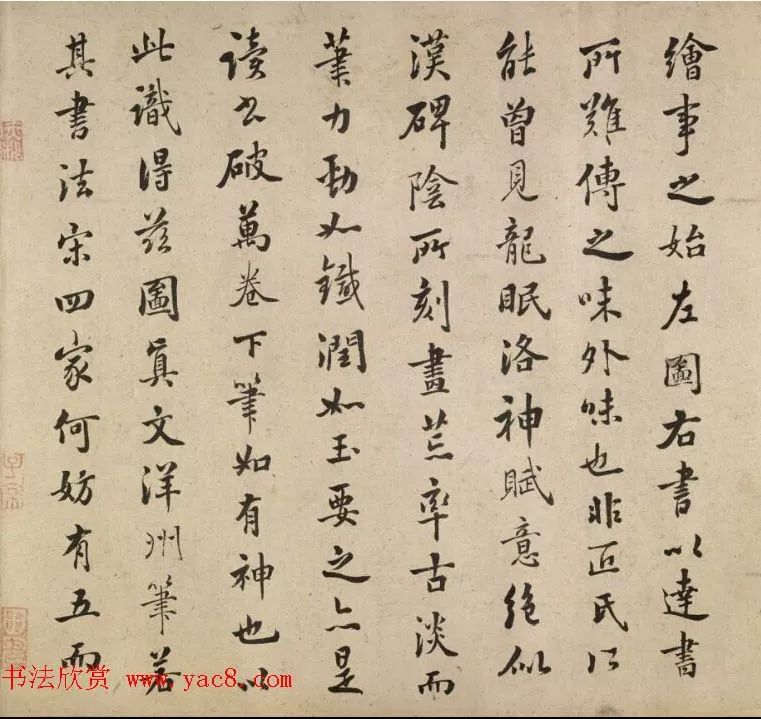 繪事之始左圖右書以達書
所難傳之味外味也非匠氏所
能曾見龍眠洛神賦意絕似
漢碑陰所刻畫荒率古淡而
筆力勁如鐵潤如玉要之亦是
讀書破萬卷下筆如有神也以
此識得茲圖真文洋州筆若
其書法宋四家何妨有五而
书法欣赏 www.yac8.com